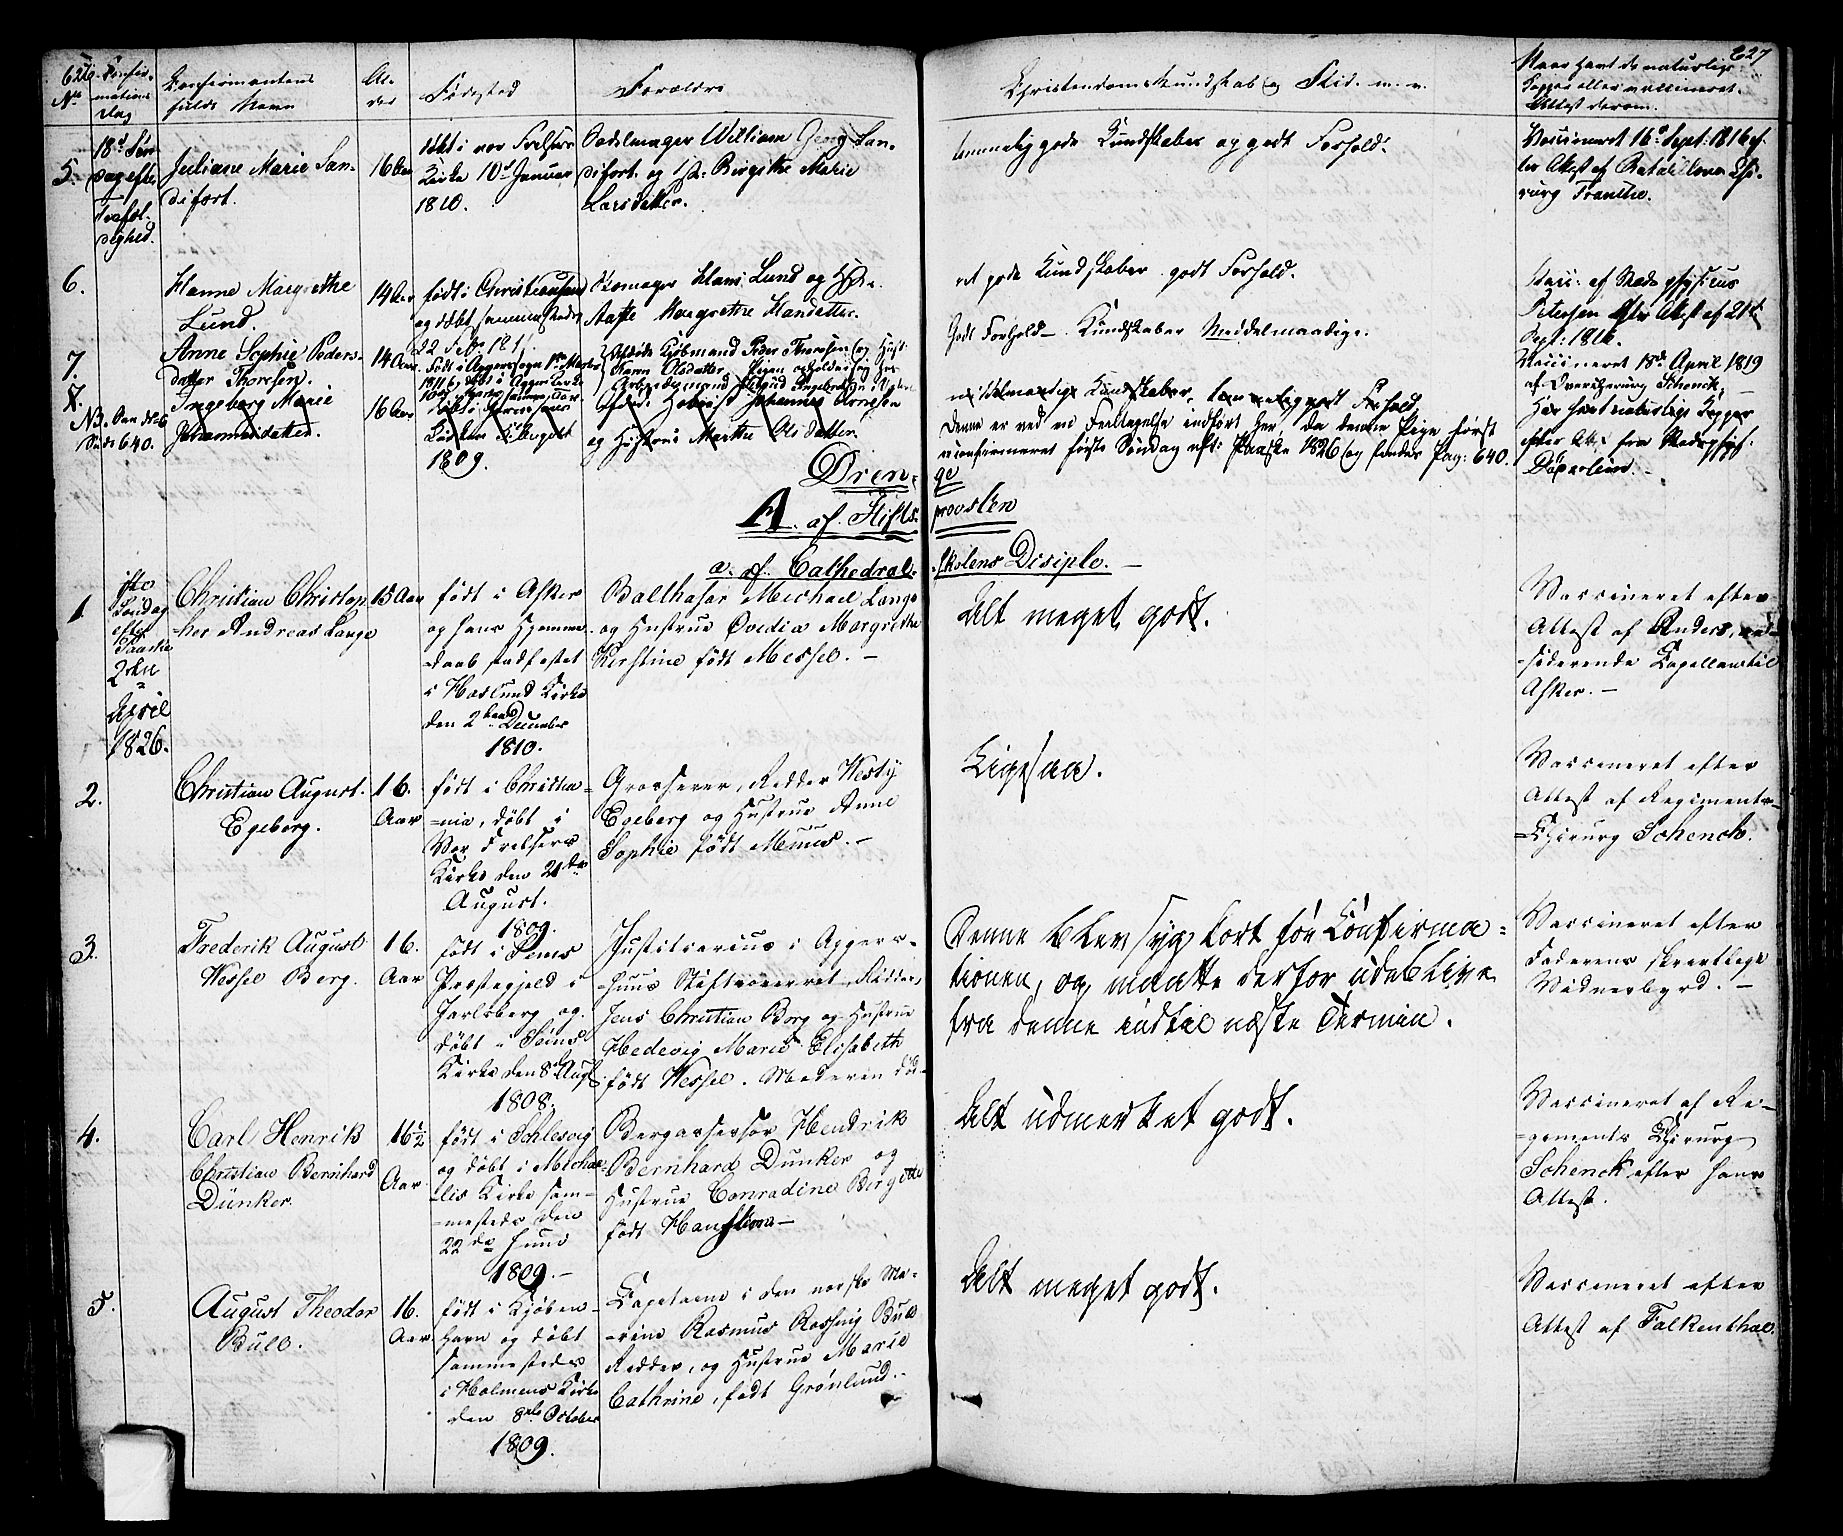 626.
No
Confir-
mations
Dag
Confirmantens
fulde Navn
Al-
der
Fødested
Forældre
Christendoms Kundskab og Flid. m. v.
627
Naar havt de naturlige
Kopper eller vaccineret.
Attest derom.
5.
18de Søn-
dag efter
Trefol-
dighed.
Juliane Marie San-
difort.
16 Aar
døbt i vor Frelsers
Kirke 10de Januar
1810.
Sadelmager William Georg San-
difort og H: Birgithe Marie
Larsdatter.
temmelig gode Kundskaber og godt Forhold.
Vaccineret 16de Sept: 1816 ef-
ter Attest af Batallions Chi-
rurg Tranthe.
6.
Hanne Margrethe
Lund.
14 Aar
født i Christiansand
og døbt sammesteds
22 Febr 181
Skomager Hans Lund og H
Aase Margrethe Hansdatter.
ret gode Kundskaber godt Forhold.
Vacc: af Stads physicus
Petersen efter Attest af 21de
Sept: 1816.
7.
Anne Sophie Peders-
datter Thoresen.
14 Aar
Født i Aggers Sogn
1811 og døbt i Agger Kirke
Afdøde Kiøbmand Peder Thoresen og Hust:
Karen Olsdatter. Pigen opholder sig hos
Godt Forhold – Kundskaber Middelmaadige.
Vaccineret 18de April 1819
af Overchirurg Schenck.
8.
NB. See No 6
Side 640.
Ingeborg Marie
Johannesdatter.
16 Aar
1809.
Johannes Arnesen
og Hustrue Marthe Olsdatter.
middelmaadige Kundskaber, temmelig godt Forhold.
Denne er ved en Feiltagelse indført her, da denne Pige først
er confirmeret første Søndag eft: Paaske 1826 og findes Pag: 640.
Har havt naturlige Kopper
efter Att: fra Stadsphys:
Døderlein.
Dren-ge
A. af Stifts-provsten
a. af Cathedral-skolens Disiple. –
1
1ste
Søndag
efter
Paaske
2den
April
1826.
Christian Christop-
her Andreas Lange
15 Aar
født i Asker
og hans Hjemme-
daab stadfestet
i Haslund Kirke
den 2den December
1810.
Balthasar Michael Lange
og Hustrue Ovedia Margrethe
Kirstine født Messel. –
Alt meget godt.
Vaccineret efter
Attest af Anders, resi-
derende Capellan til
Asker. –
2.
Christian August
Egeberg.
16.
Aar
født i Christia-
nia, døbt i
Vor Frelsers
Kirke den 21de
August.
1809.
Grosserer, Ridder Westy
Egeberg og Hustrue Anne
Sophie født Muus. –
Ligesaa.
Vaccineret efter
Attest af Regiments-
Chirurg Schenck.
3.
Frederik August
Wessel Berg.
16.
Aar
født i Sems
Præstegjeld i
Jarlsberg og
døbt i Sems
Kirke den 8de Aug:
1808.
Justitiarius i Aggers-
huus Stiftsoverret, Ridder,
Jens Christian Berg og Hustrue
Hedevig Marie Elisabeth
født Wessel. Moderen død
Denne blev syg kort før Confirma-
tionen, og maatte derfor udeblive
fra denne indtil næste Termin.
Vaccineret efter
Faderens skrevtlige
Vidnesbyrd. –
4.
Carl Henrik
Christian Bernhard
Dunker.
16½
Aar
født i Schlesvig
og døbt i Michae-
lis Kirke sam-
mesteds den
22de Juni
1809. –
Bergassessor Hendrik
Bernhard Dunker og
Hustrue Conradine Birgitte
født Hansteen –
Alt udmerket godt.
Vaccineret af Re-
gements Chirurg
Schenck efter hans
Attest.
5.
August Theodor
Bull.
16.
Aar
født i Kjøben-
havn og døbt
sammesteds
i Holmens Kirke
den 8de October
1809.
Capetaine i den norske Ma-
rine Rasmus Rossing Bull
Ridder, og Hustrue Marie
Cathrine, født Grønlund. –
Alt meget godt.
Vaccineret efter
Attest af Falkenthal.